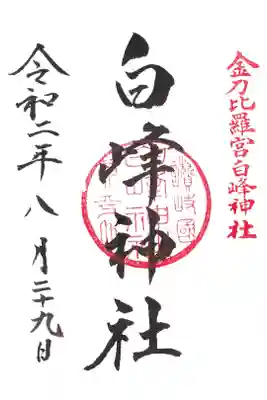 金刀比羅宮白峰神社
白峰神社
令和二年八月二十九日